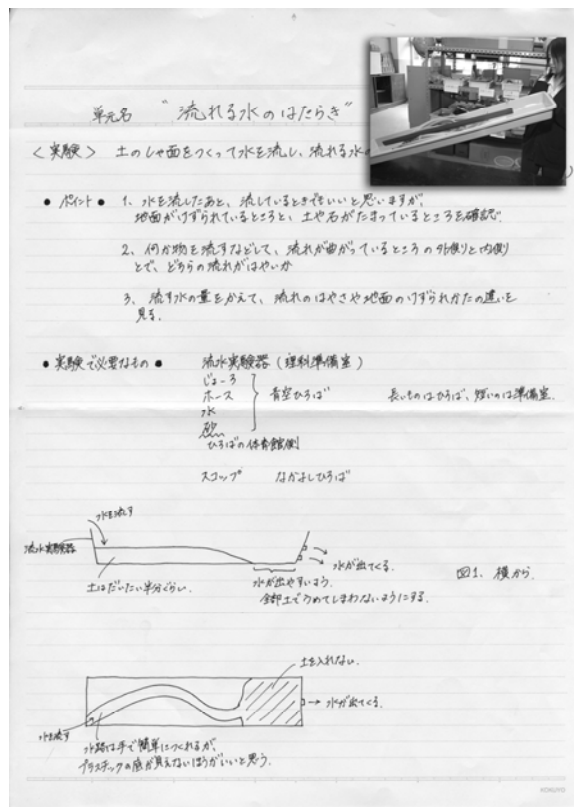 単元名 "流れる水のはたらき"
〈実験〉 土のしゃ面をつくって水を流し、流れる水の
● ポイント ● 1、水を流したあと、流しているときでもいいと思いますが、
地面がけずられているところと、土や石がたまっているところを確認。
2、何か物を流すなどして、流れが曲がっているところの外側と内側
とで、どちらの流れがはやいか
3、流す水の量をかえて、流れのはやさや地面のけずられかたの違いを
見る。
● 実験で必要なもの ● 流水実験器(理科準備室)
じょーろ
ホース 青空ひろば 長いものはひろば、短いのは準備室。
水
砂
ひろばの体育館側
スコップ なかよしひろば
水を流す
流水実験器
水が出てくる。
土はだいたい半分ぐらい。
水が出やすいよう。
全部土でうめてしまわないようにする。
図1、横から。
土を入れない。
水が出てくる。
水を流す
水路は手で簡単につくれるが、
プラスチックの底が見えないほうがいいと思う。
KOKUYO